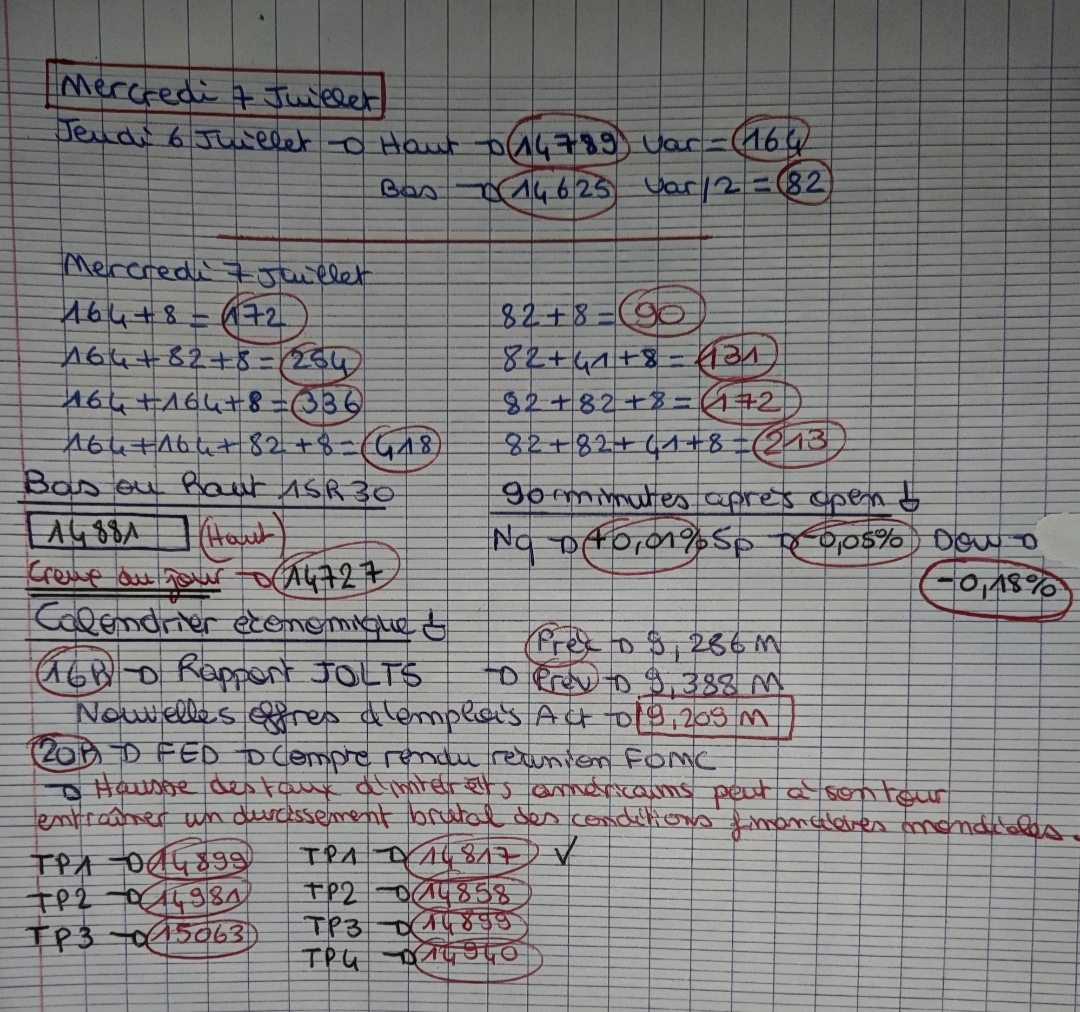 Mercredi 7 Juillet
Jeudi 6 Juillet → Haut → 14789 Var = 164
Bas → 14625 Var/2 = 82
Mercredi 7 Juillet
164 + 8 = 172
82 + 8 = 90
164 + 82 + 8 = 254
82 + 41 + 8 = 131
164 + 164 + 8 = 336
82 + 82 + 8 = 172
164 + 164 + 82 + 8 = 418
82 + 82 + 41 + 8 = 213
Bas ou haut 15h30
90 minutes après open ↓
14881 (Haut)
Nq → +0,01% Sp → -0,05% Dow →
-0,18%
Creux du jour → 14727
Calendrier économique ↓
16h → Rapport JOLTS
Préc → 9,286 M
→ Prév → 9,388 M
Nouvelles offres d'emplois Act → 9,209 M
20h → FED → Compte rendu réunion FOMC
→ Hausse des taux d'intérêts américains peut à son tour
entraîner un durcissement brutal des conditions financières mondiales.
TP1 → 14899
TP1 → 14817 ✓
TP2 → 14981
TP2 → 14858
TP3 → 15063
TP3 → 14899
TP4 → 14940